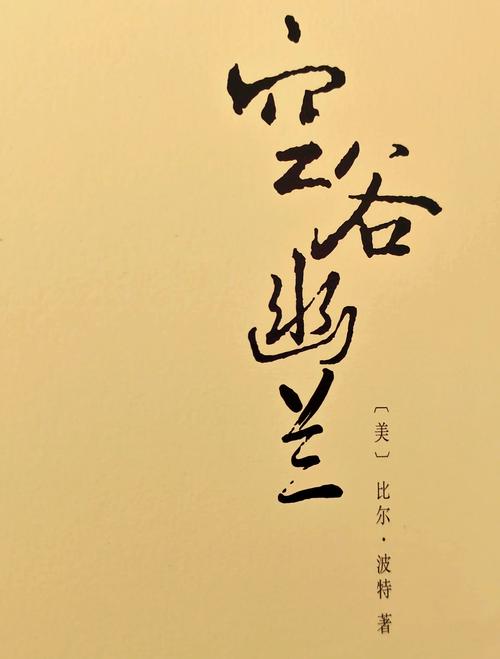 空谷幽兰
〔美〕比尔·波特 著